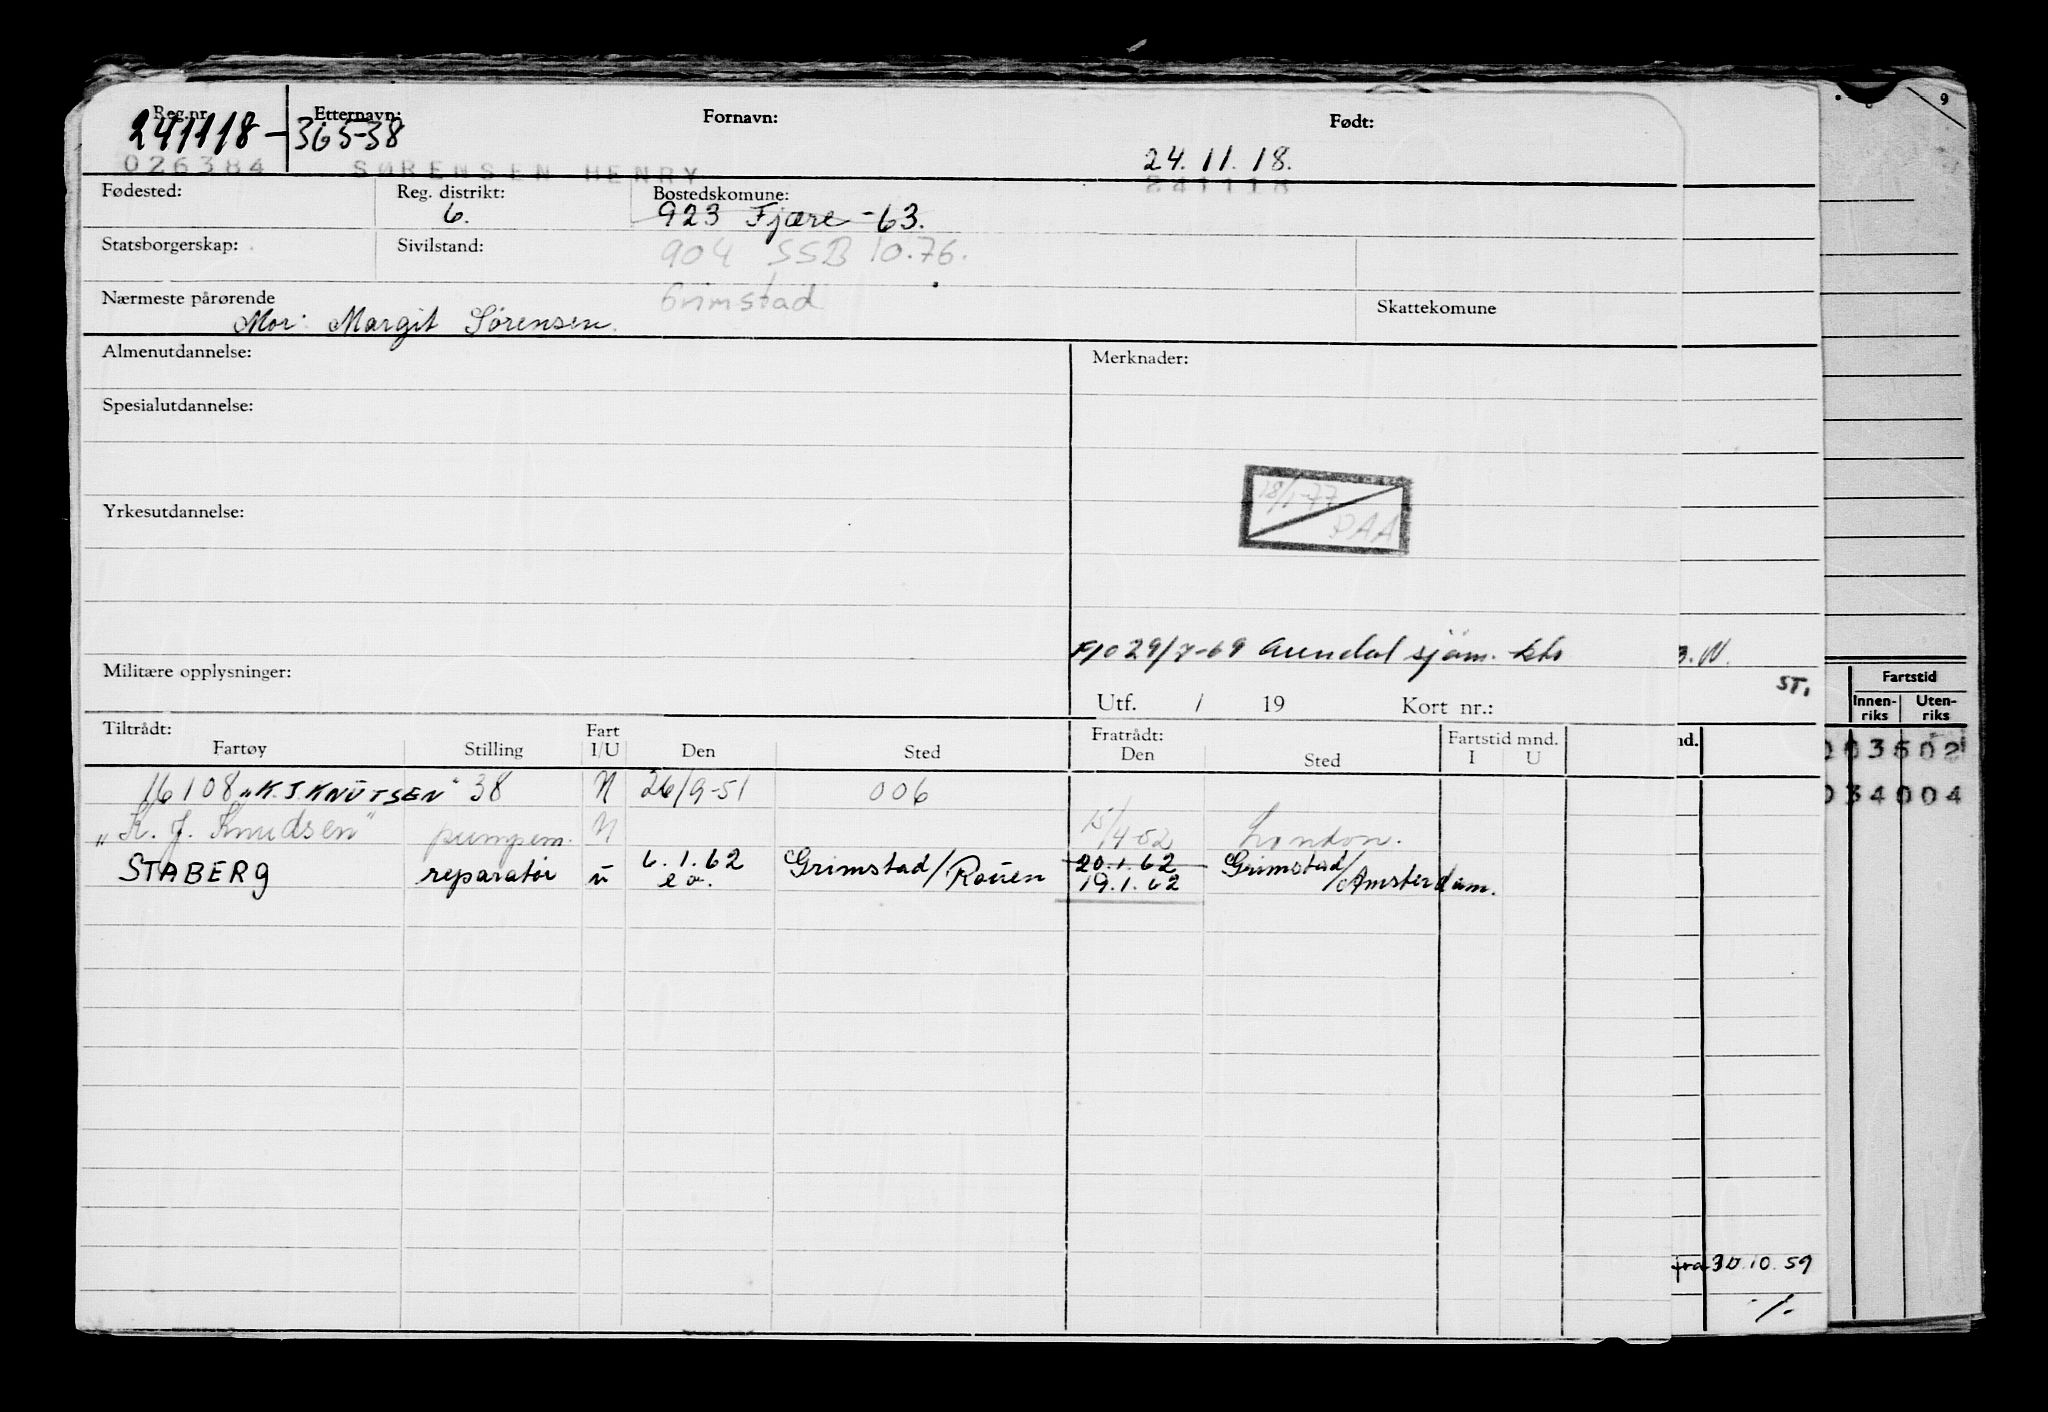 Reg.nr. Etternavn: Fornavn: Født:
241118-36538
24.11.18.
026384 SØRENSEN HENRY 241118
Fødested: Reg. distrikt: Bostedskomune:
6. 923 Fjære -63.
Statsborgerskap: Sivilstand: 904 SSB 10.76.
Nærmeste pårørende Grimstad Skattekomune
Mor: Margit Sørensen.
Almenutdannelse: Merknader:
Spesialutdannelse:
18/1-77
PAA
Yrkesutdannelse:
29/7-69 Arendal sjøm. kto
Militære opplysninger:
ST.
Utf. / 19 Kort nr.:
Tiltrådt: Fart Fratrådt: Fartstid mnd.
Fartøy Stilling I/U Den Sted Den Sted I U
nd.
16108 "K.J.KNUTSEN" 38 N 26/9-51 006
"K. J. Knudsen" pumpem. N 15/4-52 London.
STABERG reparatør u 6.1.62 Grimstad/Rouen 20.1.62 Grimstad/Amsterdam.
e o. 19.1.62
fra 30.10.59
9
Fartstid
Innen-riks Uten-riks
034004